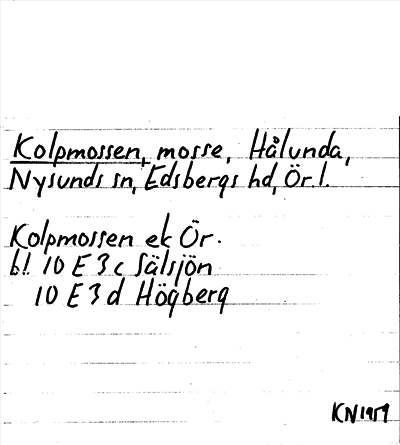 Kolpmossen, mosse, Hålunda,
Nysunds sn, Edsbergs hd, Ör. l.
Kolpmossen ek Ör.
bl 10 E 3 c Sälsjön
10 E 3 d Högberg
KN 1959